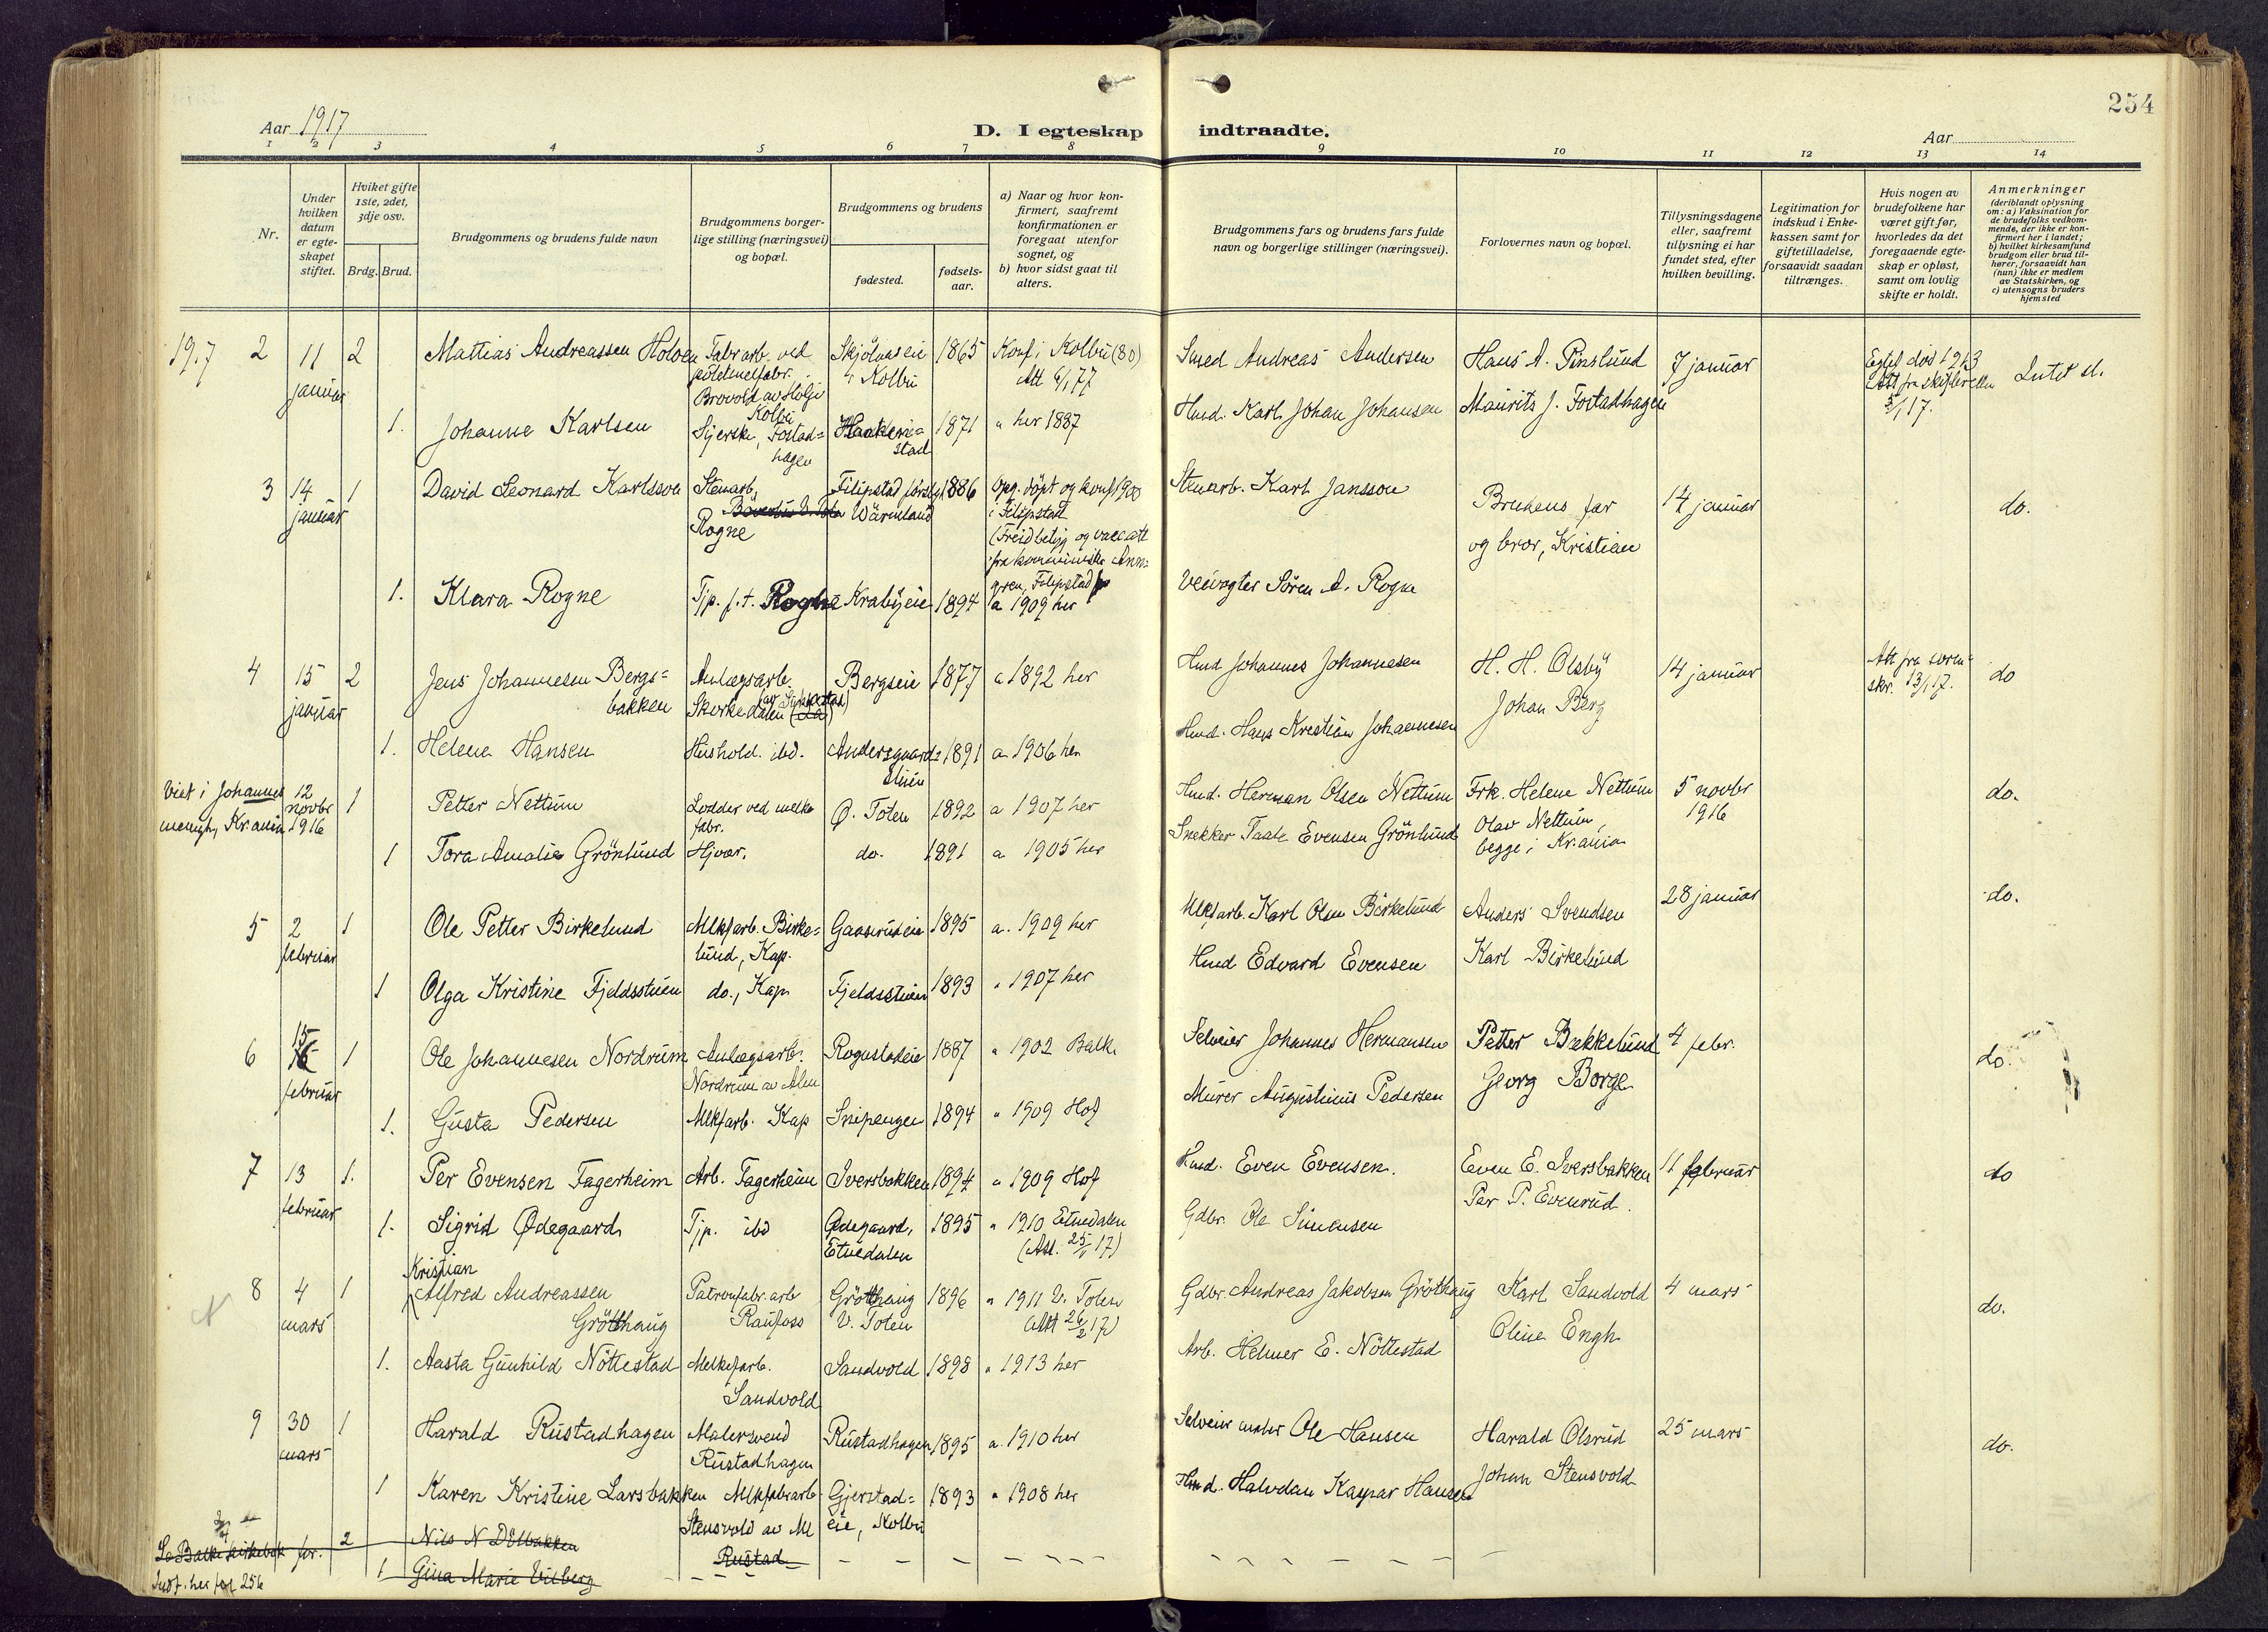 254
Aar 1917
D. I egteskap indtraadte.
Aar
1 2 3 4 5 6 7 8 9 10 11 12 13 14
Nr.
Under
hvilken
datum
er egte-
skapet
stiftet.
Hviket gifte
1ste, 2det,
3dje osv.
Brdg. Brud.
Brudgommens og brudens fulde navn
Brudgommens borger-
lige stilling (næringsvei)
og bopæl.
Brudgommens og brudens
fødested.
fødsels-
aar.
a) Naar og hvor kon-
firmert, saafremt
konfirmationen er
foregaat utenfor
sognet, og
b) hvor sidst gaat til
alters.
Brudgommens fars og brudens fars fulde
navn og borgerlige stillinger (næringsvei).
Forlovernes navn og bopæl.
Tillysningsdagene
eller, saafremt
tillysning ei har
fundet sted, efter
hvilken bevilling.
Legitimation for
indskud i Enke-
kassen samt for
giftetilladelse,
forsaavidt saadan
tiltrænges.
Hvis nogen av
brudefolkene har
været gift før,
hvorledes da det
foregaaende egte-
skap er opløst,
samt om lovlig
skifte er holdt.
Anmerkninger
(deriblandt oplysning
om: a) Vaksination for
de brudefolks vedkom-
mende, der ikke er kon-
firmert her i landet;
b) hvilket kirkesamfund
brudgom eller brud til-
hører, forsaavidt han
(hun) ikke er medlem
av Statskirken, og
c) utensogns bruders
hjemsted
1917 2 11 januar 2 Mattias Andreassen Holven Fabr.arb. ved
potetmelfabr.
Brovold av
Kolbu
Skjölaaseie
i Kolbu
1865 Konf i Kolbu (80)
Att 6/1 77
Smed Andreas Andersen Hans A. Pinslund 7 januar Egtef. död 1913
Att fra skifteretten
5/1 17.
Intet sl.
1. Johanne Karlsen Syerske, Fostad=
hagen
Haakens=
stad
1871 " her 1887 Hmd. Karl Johan Johansen Maurits J. Fostadhagen
3 14 januar 1 David Leonard Karlsson Stenarb.
Rogne
Filipstad
Wärmland
1886 Opg. döpt og konf 1900
i Filipstad
Stenarb. Karl Jansson Brudens far
og bror, Kristian
14 januar do.
1. Klara Rogne Tjp. f.t. Rogne Krabyeie 1894 a 1909 her Veivogter Sören A. Rogne
4 15 januar 2 Jens Johannesen Bergs=
bakken
Anlægsarb.
Skorkedalen
Bergseie 1877 a 1892 her Hmd Johannes Johannesen H. H. Olsby
Johan Berg
14 januar Att fra soren=
skr. 13/1 17.
do
1. Helene Hansen Hushold. ibd. Andersgaard=
stuen
1891 a 1906 her Hmd. Hans Kristian Johannesen
Viet i Johannes
menigh, Kr.ania
12 novbr 1916 1 Petter Nettum Lodder ved melke
fabr.
Ø. Toten 1892 a 1907 her Hmd. Herman Olsen Nettum Frk. Helene Nettum
Olav Nettum,
begge i Kr.ania
5 novbr
1916
do.
1 Tora Amalie Grönlund Hjvær. do. 1891 a 1905 her Snekker Taale Evensen Grönlund
5 2 februar 1 Ole Petter Birkelund Mlkfarb. Birke=
lund, Kap.
Gaaserudeie 1895 a. 1909 her Mlkfarb. Karl Olsen Birkelund Anders Svendsen
28 januar do.
1 Olga Kristine Fjeldsstuen do., Kap Fjeldsstuen 1893 " 1907 her Hmd Edvard Evensen Karl Birkelund
6 15 februar 1 Ole Johannesen Nordrum Anlægsarb.
Nordrum av Alm
Rognstadeie 1887 " 1902 Balke Selveier Johannes Hermansen Petter Bækkelund 4 febr. do.
1. Gusta Pedersen Mlkfarb. Kap Snipengen 1894 " 1909 Hof Murer Augustinus Pedersen Georg Borge
7 13 februar 1. Per Evensen Fagerheim Arb. Fagerheim Iversbakken 1894 " 1909 Hof Hmd. Even Evensen. Even E. Iversbakken 11 februar do
1. Sigrid Ødegaard Tjp. ibd Ødegaard,
Etnedalen
1895 " 1910 Etnedalen
(Att. 25/1 17)
Gdbr. Ole Simensen Per P. Evenrud.
8 4 mars 1 Kristian
Alfred Andreassen
Grötthaug
Patronfabr.arb
Raufoss
Grötthaug
V. Toten
1896 " 1911 V. Toten
(Att 26/2 17)
Gdbr. Andreas Jakobsen Grötthaug Karl Sandvold 4 mars do.
1. Aasta Gunhild Nöttestad Melkefarb.
Sandvold
Sandvold 1898 " 1913 her Arb. Helmer E. Nöttestad Oline Engh
9 30 mars 1 Harald Rustadhagen Malersvend
Rustadhagen
Rustadhagen 1895 a. 1910 her Selveier maler Ole Hansen Harald Olsrud 25 mars do.
1 Karen Kristine Larsbakken Mlkfabrarb
Stensvold av Ml
Gjerstad=
eie, Kolbu
1893 " 1908 her Hmd. Halvdan Kaspar Hansen Johan Stensvold
Se Balke kirkebok for. 2 Nils N Dölbakken Rustad
Indf. her fol 256 1 Gina Marie Vilberg